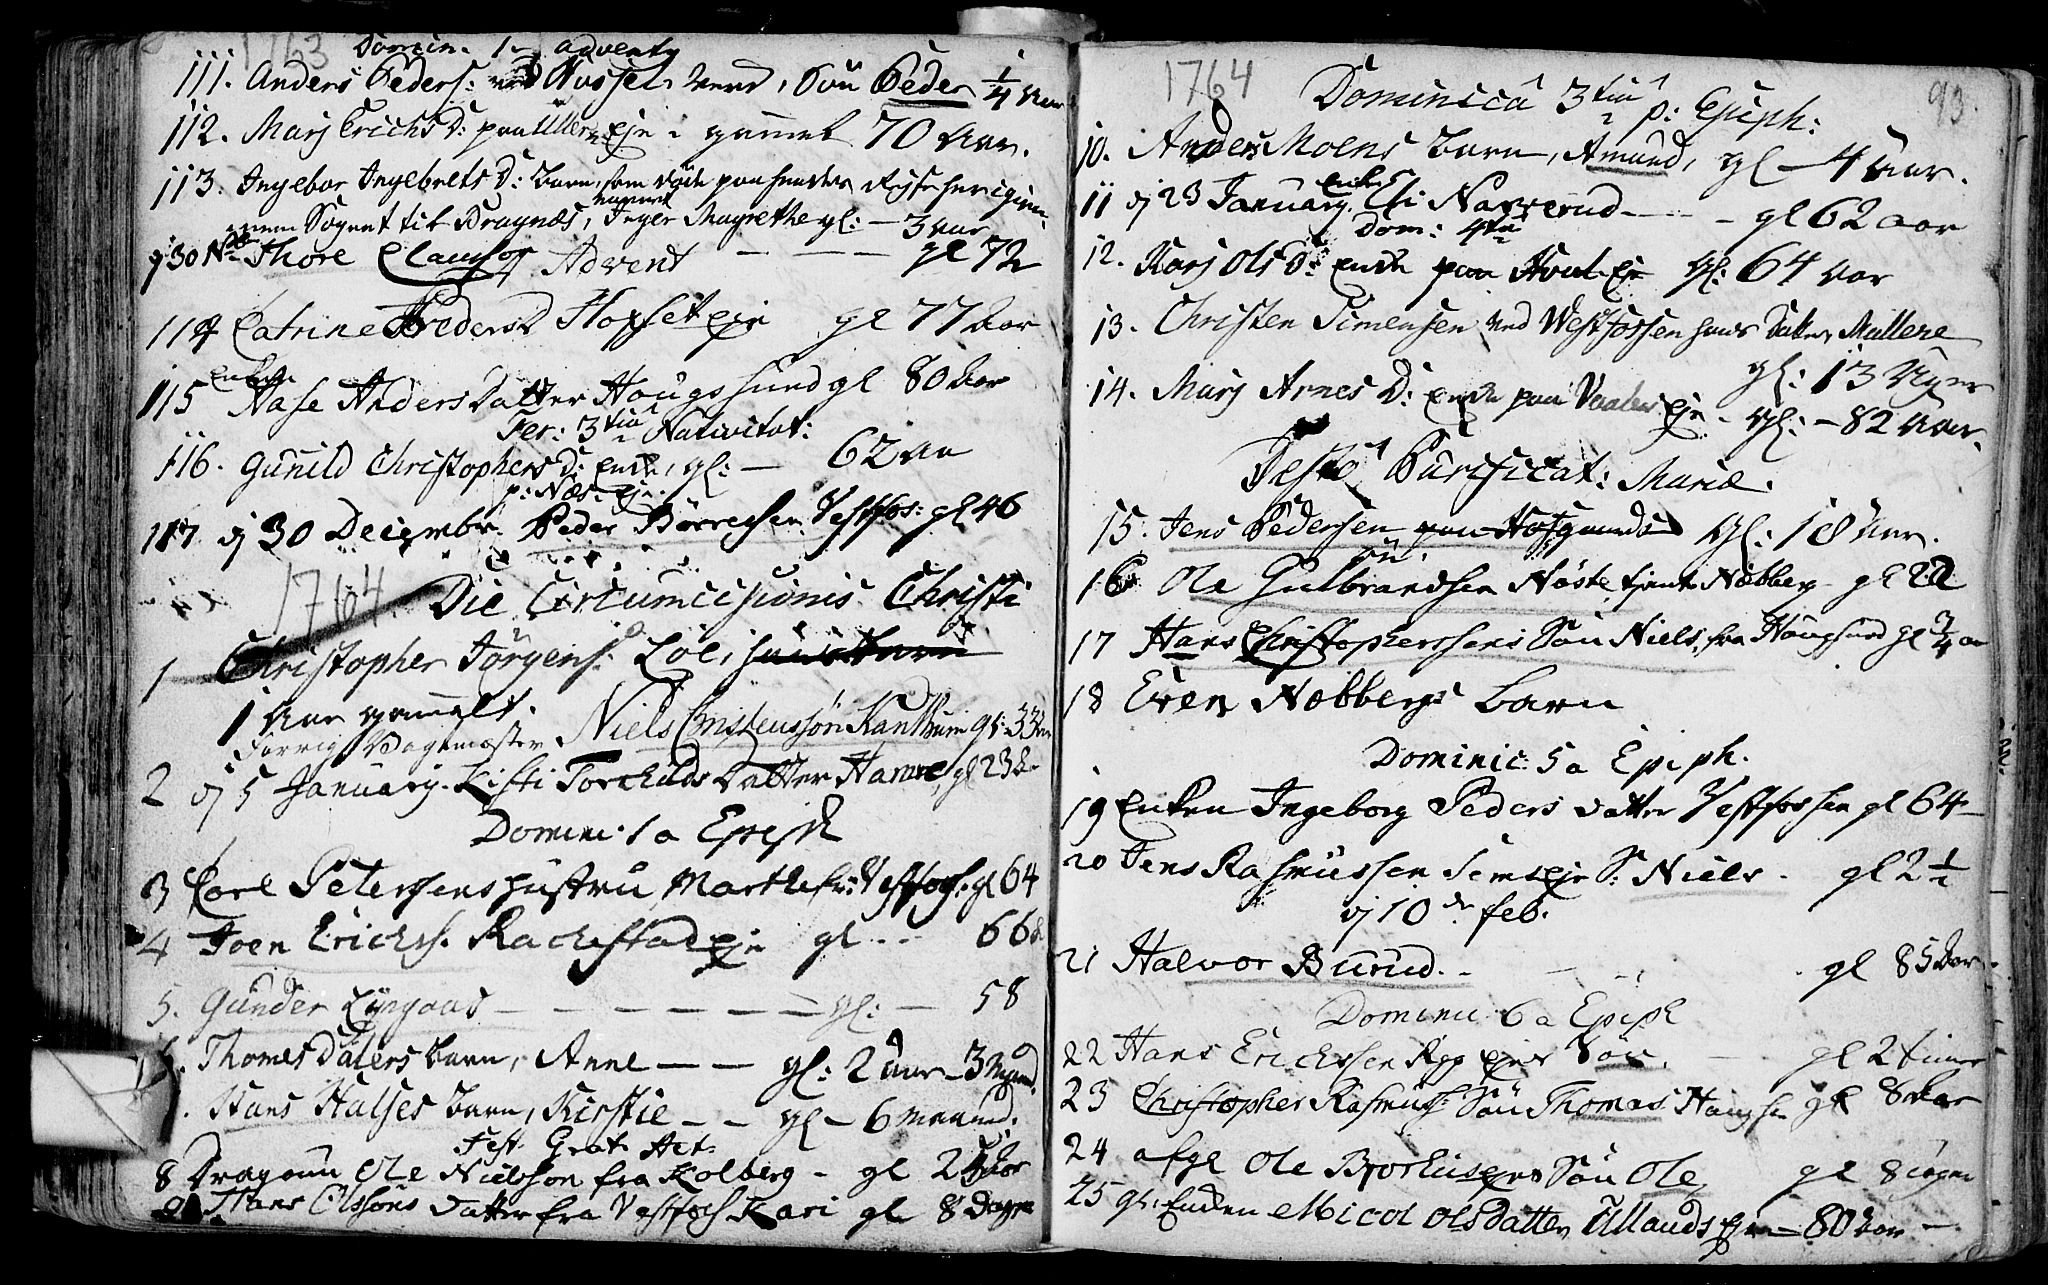 1763 Domin. 1 adventy
111. Anders Peders: ved Hossel verd, Sön Peder 1/4 Aar
112. Marj Erichs D: paa Ullern eje gammel 70 Aar.
113. Ingebor Ingebrets D: barn, som döde paa hendes Reise her igien-
nem Sognet til Bragnæs, navnl Inger Magrethe gl: - 3 aar
dj 30 Nbr Thore Clausson Advent - - - gl 72
114 Catrine Peders D Hopset eje gl 77 Aar
115 Enken Aase Anders datter Hougsund gl 80 Aar
Fer: 3tia Nativitat:
116. Gunild Christophers D: enke, gl: - 62 Aa
p: Næs eje.
117 dj 30 Decembr. Peder Börresen Vestfos: gl 46
1764 Die Circumcisionis Christi
1 Christopher Jörgens: Löe, hans barn
1 Aar gammelt.
forrige Vagtmester Niels Christenssön Kanthum gl: 33 Aar
2 dj 5 January. Kisti Torchilds datter Hamre, gl 23 Ar
Domin: 1a Epiph
3 Carl Peterssens hustru Marthe fr: Vestfos: gl 64
4 Joen Erichs. Rachestad eje gl - - 66 a
5. Gunder Lyngaas - - - - - - gl: - 58
6. Thomes Dalers barn, Anne - - gl: 2 aar - 3 maaned.
7. Hans Halses barn, Kirstie - - gl - 6 maaned:
Fest. Grat: Act:
8 Dragoun Ole Nielsson fra Kolberg - gl 24 Aar
9 Hans Olssöns datter fra Vestfos Kari gl 8 Dage
1764 93.
Dominica 3tia p: Epiph:
10. Anders Moens barn, Amund, gl - 4 Aar.
11 dj 23 January enke Eli Naverud - - - gl 62 aar
Dom: 4ta
12. Karj Ols D: enke paa Hval eje gl: 64 Aar
13. Christen Simensen ved Westfossen hans datter, Mallene
gl: 13 Uger
14. Marj Arnes D: enke paa Vaaler eje - gl: - 82 Aar.
Festo Purificat: Mariæ.
15. Jens Pedersen paa Hofgaards gl: 18 Aar.
16 Ole Gulbrandsen Nöste tjente Næbberg gl 22
17 Hans Christopherssens Sön Niels, fra Hougsund gl 3/4 aar
18 Even Næbbergs barn
Dominic: 5a Epiph.
19 Enken Ingeborg Peders datter Vestfossen gl 64 -
20 Jens Rasmussen Sems eje S: Niels - gl 2 1/2
dj 10de feb.
21 Halvor Burud. - - - gl 85 Aar
Domin: 6a Epiph
22 Hans Erichssen ejes Sön. - gl 2 timer
23 Christopher Rasmus: Sön Thomas Hougsu gl 8 Aar
24 afgl Ole Biorkus ejes Sön Ole, gl 8 uger
25 gl: Enken Micol Olsdatter Ullands eje - 80 Aar -